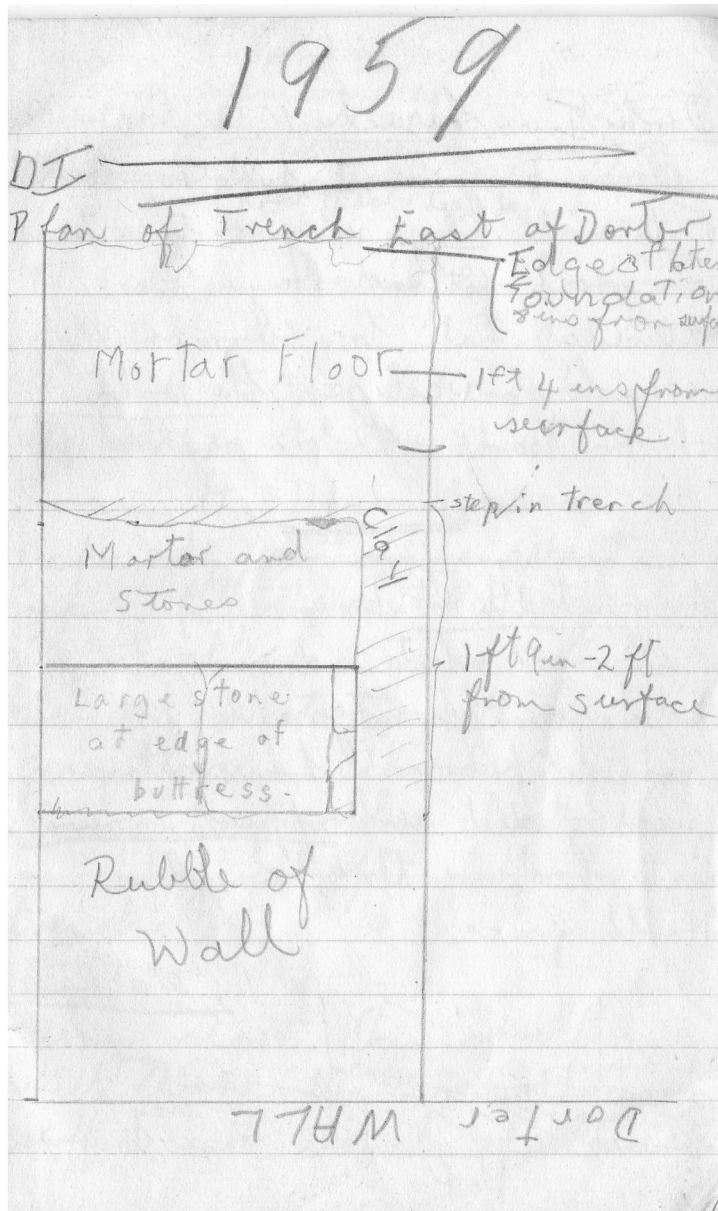 1959
DI
Plan of Trench East of Dorter
Edge of later
Foundation
8 ins from surfa
Mortar Floor
1ft 4 ins from
seurface.
step in trench
Clay
Mortar and
Stones
1 ft 9in - 2 ft
from surface
Large stone
at edge of
buttress.
Rubble of
Wall
Dorter WALL